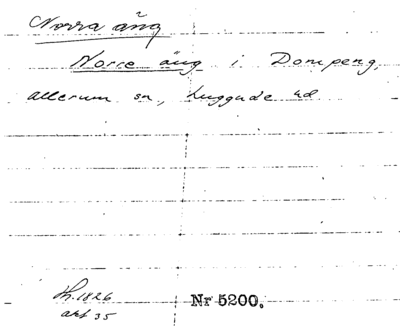 Norra äng
Norre äng i Dompeng,
Allerum sn, Luggude hd
Lh. 1826
akt 35
Nr 5200.